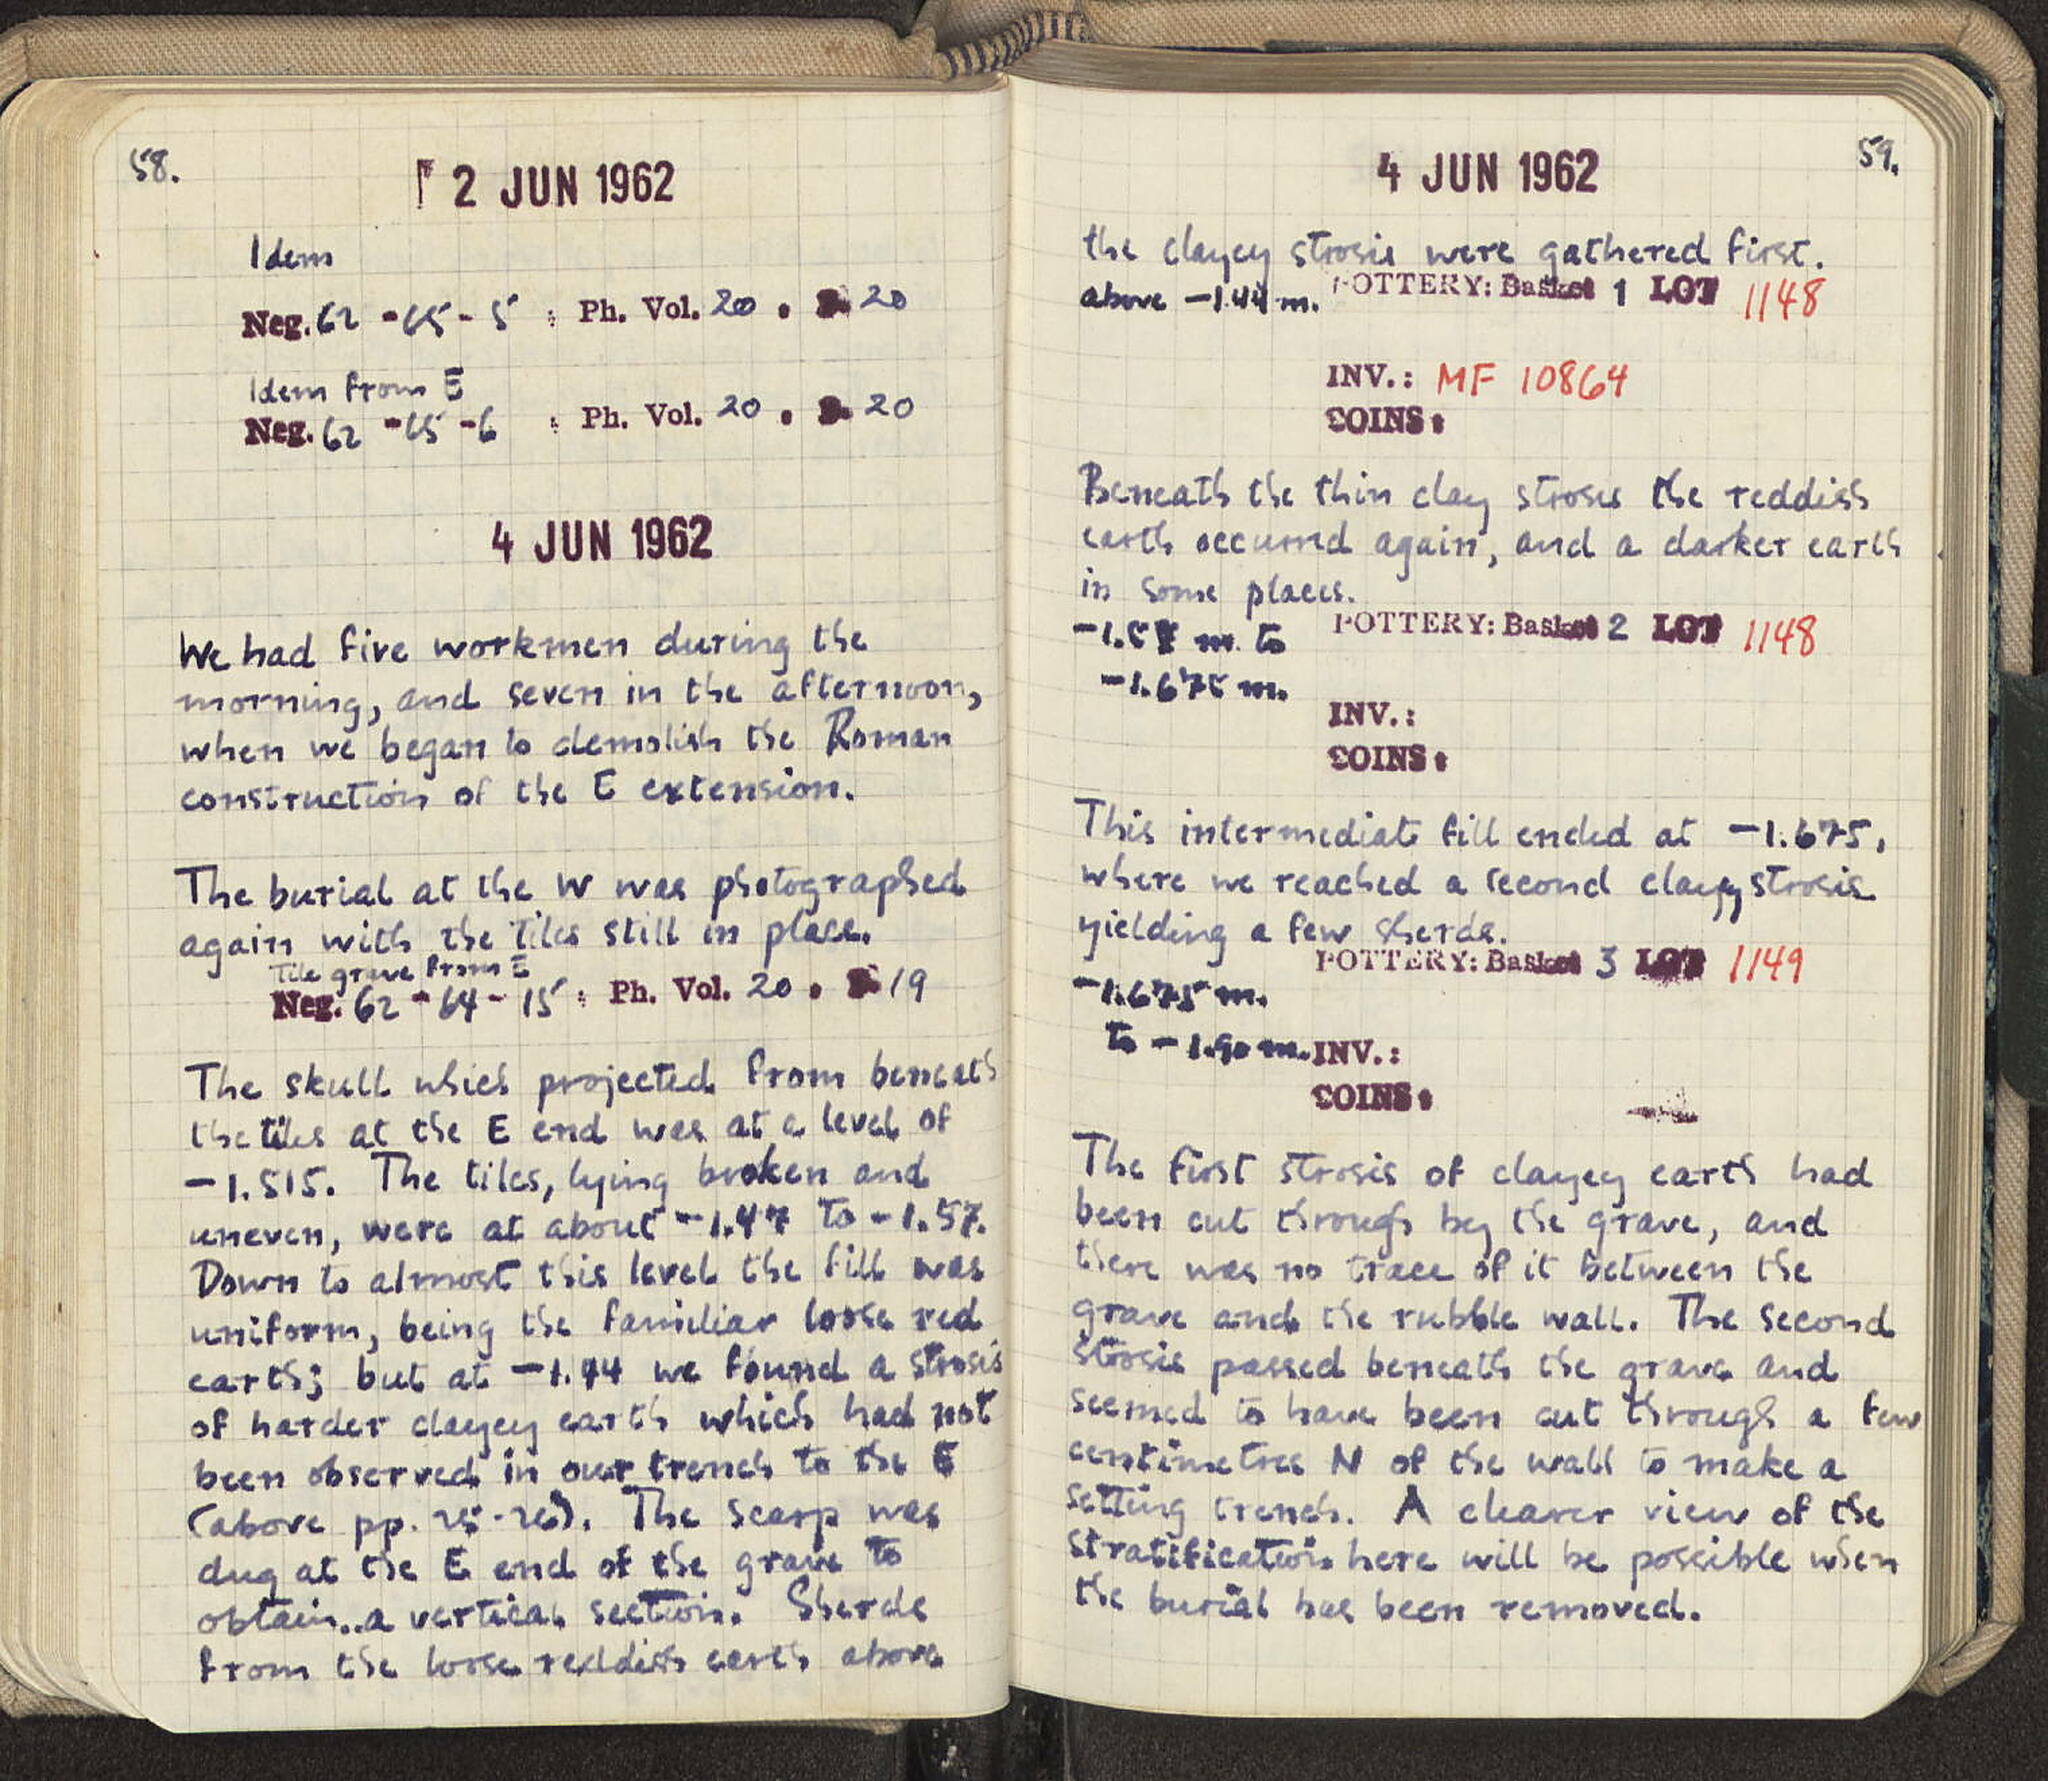 58.
2 JUN 1962
Idem
Neg. 62 - 65 - 5 : Ph. Vol. 20 . P. 20
Idem from E
Neg. 62 - 65 - 6 : Ph. Vol. 20 . P. 20
4 JUN 1962
We had five workmen during the
morning, and seven in the afternoon,
when we began to demolish the Roman
construction of the E extension.
The burial at the W was photographed
again with the tiles still in place.
Tile grave from E
Neg. 62 - 64 - 15 : Ph. Vol. 20 . P. 19
The skull which projected from beneath
the tiles at the E end was at a level of
-1.515. The tiles, lying broken and
uneven, were at about -1.47 to -1.57.
Down to almost this level the fill was
uniform, being the familiar loose red
earth; but at -1.44 we found a strosis
of harder clayey earth which had not
been observed in our trench to the E
(above pp. 25-26). The scarp was
dug at the E end of the grave to
obtain a vertical section. Sherds
from the loose reddish earth above
59.
4 JUN 1962
the clayey strosis were gathered first.
above -1.44 m. POTTERY: Basket 1 LOT 1148
INV.: MF 10864
COINS:
Beneath the thin clay strosis the reddish
earth occurred again, and a darker earth
in some places.
POTTERY: Basket 2 LOT 1148
m. to
-1.675 m.
INV.:
COINS:
This intermediate fill ended at -1.675,
where we reached a second clayey strosis
yielding a few sherds.
POTTERY: Basket 3 LOT 1149
-1.675 m.
to -1.90 m. INV.:
COINS:
The first strosis of clayey earth had
been cut through by the grave, and
there was no trace of it between the
grave and the rubble wall. The second
strosis passed beneath the grave and
seemed to have been cut through a few
centimetres N of the wall to make a
setting trench. A clearer view of the
stratification here will be possible when
the burial has been removed.